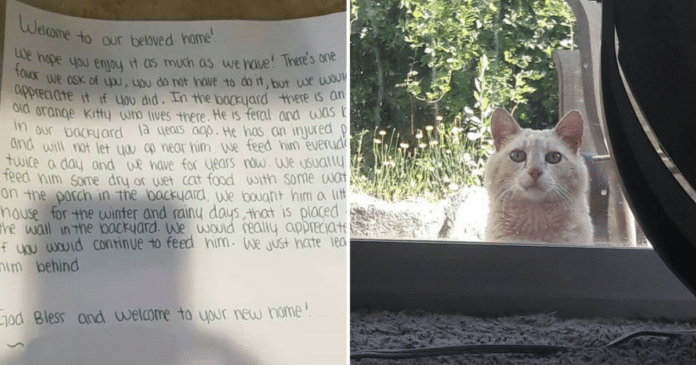 Welcome to our beloved home!
We hope you enjoy it as much as we have! There's one
favor we ask of you, you do not have to do it, but we
appreciate it if you did. In the backyard there is an
old orange kitty who lives there. He is feral and was
in our backyard 12 years ago. He has an injured
and will not let you go near him. We feed him
twice a day and we have for years now. We usually
feed him some dry or wet cat food with some
on the porch in the backyard. We bought him a
house for the winter and rainy days, that is placed
the wall in the backyard. We would really appreciate
f you would continue to feed him. We just hate
him behind
God Bless and welcome to your new home!